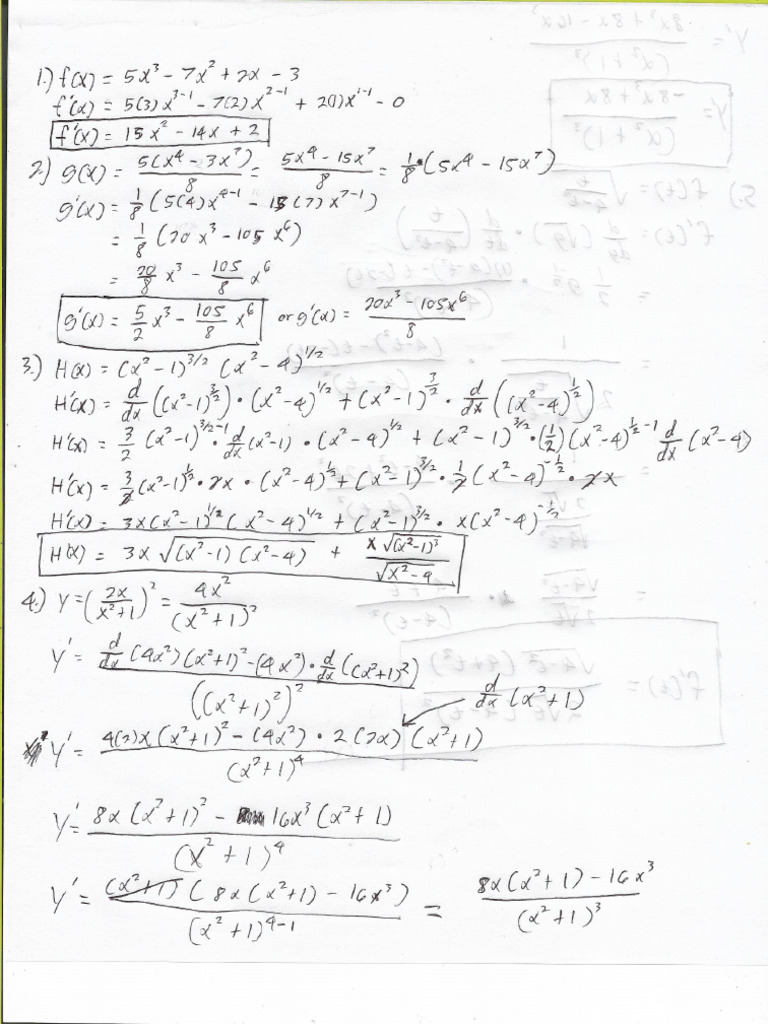 1.) f(x) = 5x³ - 7x² + 2x - 3
f'(x) = 5(3)x³⁻¹ - 7(2)x²⁻¹ + 2(1)x¹⁻¹ - 0
f'(x) = 15x² - 14x + 2
2.) g(x) = 5(x⁴ - 3x⁷)/8 = 5x⁴ - 15x⁷/8 = 1/8 • (5x⁴ - 15x⁷)
g'(x) = 1/8 (5(4)x⁴⁻¹ - 15(7)x⁷⁻¹)
= 1/8 (20x³ - 105x⁶)
= 20/8 x³ - 105/8 x⁶
g'(x) = 5/2 x³ - 105/8 x⁶ or g'(x) = 20x³ - 105x⁶/8
3.) H(x) = (x² - 1)^3/2 (x² - 4)^1/2
H'(x) = d/dx ((x² - 1)^3/2) • (x² - 4)^1/2 + (x² - 1)^3/2 • d/dx ((x² - 4)^1/2)
H'(x) = 3/2 (x² - 1)^3/2-1 • d/dx (x² - 1) • (x² - 4)^1/2 + (x² - 1)^3/2 • (1/2)(x² - 4)^1/2-1 d/dx (x² - 4)
H'(x) = 3/2 (x² - 1)^1/2 • 2x • (x² - 4)^1/2 + (x² - 1)^3/2 • 1/2 (x² - 4)^-1/2 • 2x
H'(x) = 3x(x² - 1)^1/2 (x² - 4)^1/2 + (x² - 1)^3/2 • x(x² - 4)^-1/2
H'(x) = 3x √(x² - 1)(x² - 4) + x√(x² - 1)³/√x² - 4
4.) y = (2x/x² + 1)² = 4x²/(x² + 1)²
y' = d/dx (4x²)(x² + 1)² - (4x²) • d/dx ((x² + 1)²)/((x² + 1)²)²
d/dx (x² + 1)
y' = 4(2)x(x² + 1)² - (4x²) • 2(2x)(x² + 1)/(x² + 1)⁴
y' = 8x(x² + 1)² - 16x³(x² + 1)/(x² + 1)⁴
y' = (x² + 1)(8x(x² + 1) - 16x³)/(x² + 1)⁴⁻¹ = 8x(x² + 1) - 16x³/(x² + 1)³